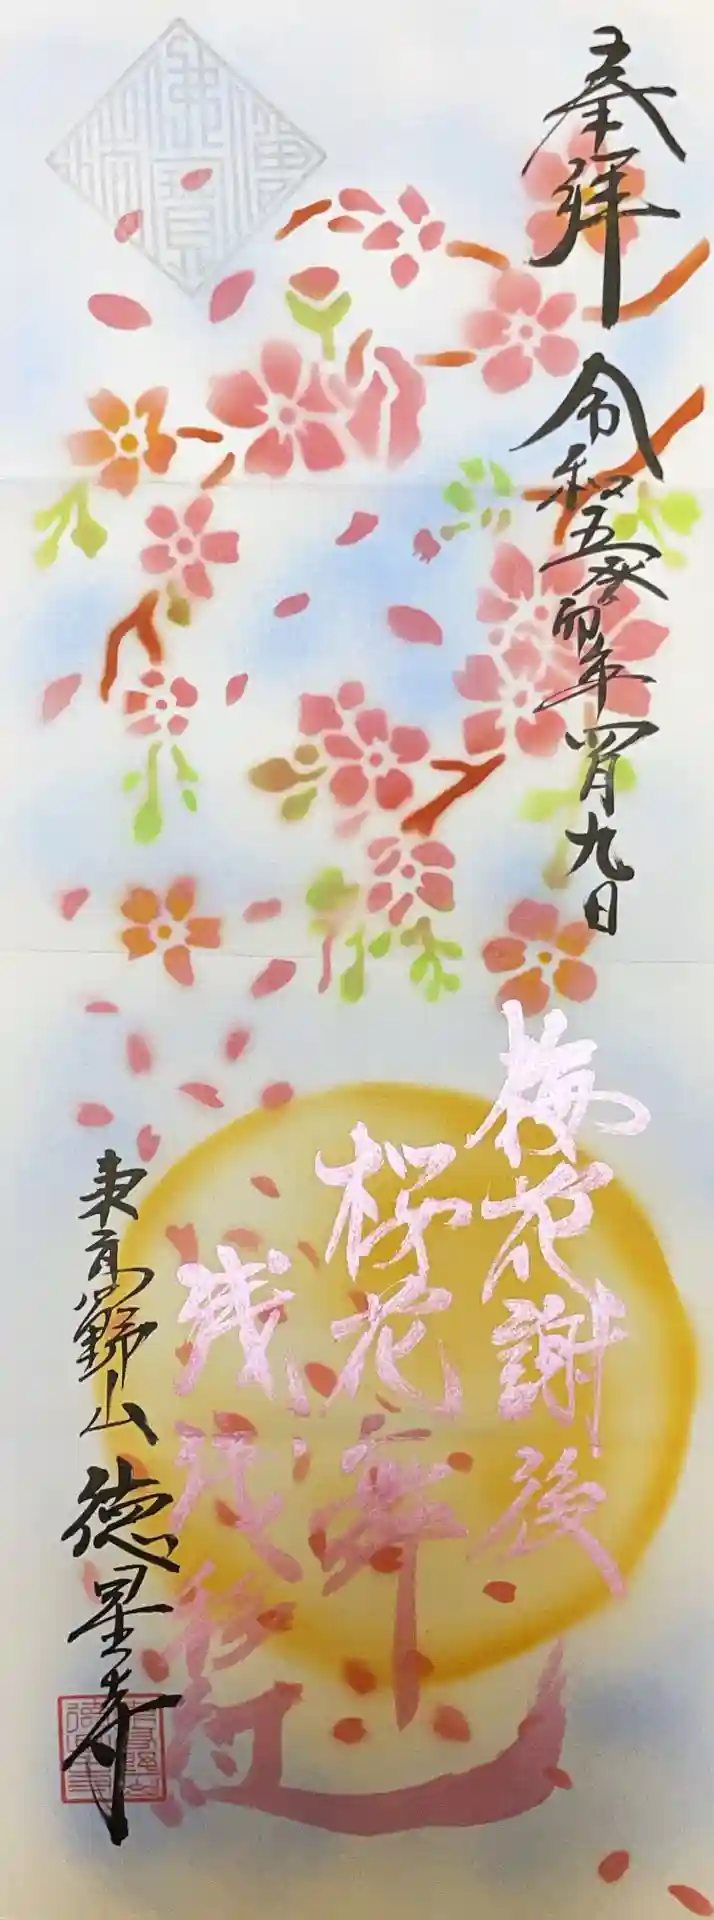 奉拝
令和五癸卯年四月九日
梅花謝後
桜花舞
浅浅移紅
東高野山 徳星寺